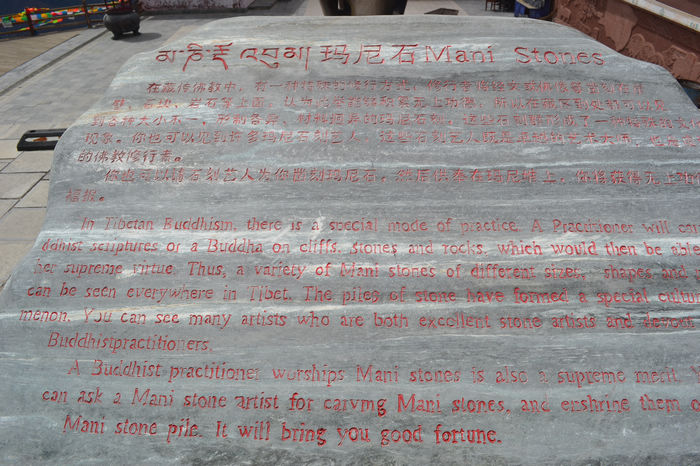 མ་ཎི་རྡོ་འབུམ། 玛尼石 Mani Stones
在藏传佛教中，有一种特殊的修行方式，修行者将经文或佛像
壁、石块、岩石等上面，认为
到各种大小不一、形制各异、
现象。你也可以见到许多玛尼石刻艺人，这些石刻艺人既是
的佛教修行者。
你也可以请石刻艺人为你雕刻玛尼石，然后供奉在玛尼堆上，你将获得无上
福报。
In Tibetan Buddhism, there is a special mode of practice. A Practitioner will car
ddhist scriptures or a Buddha on cliffs, stones and rocks, which would then be able
her supreme virtue. Thus, a variety of Mani stones of different sizes, shapes and
can be seen everywhere in Tibet. The piles of stone have formed a special cultur
menon. You can see many artists who are both excellent stone artists and devout
Buddhistpractitioners.
A Buddhist practitioner worships Mani stones is also a supreme merit. Y
can ask a Mani stone artist for carvmg Mani stones, and enshrine them o
Mani stone pile. It will bring you good fortune.